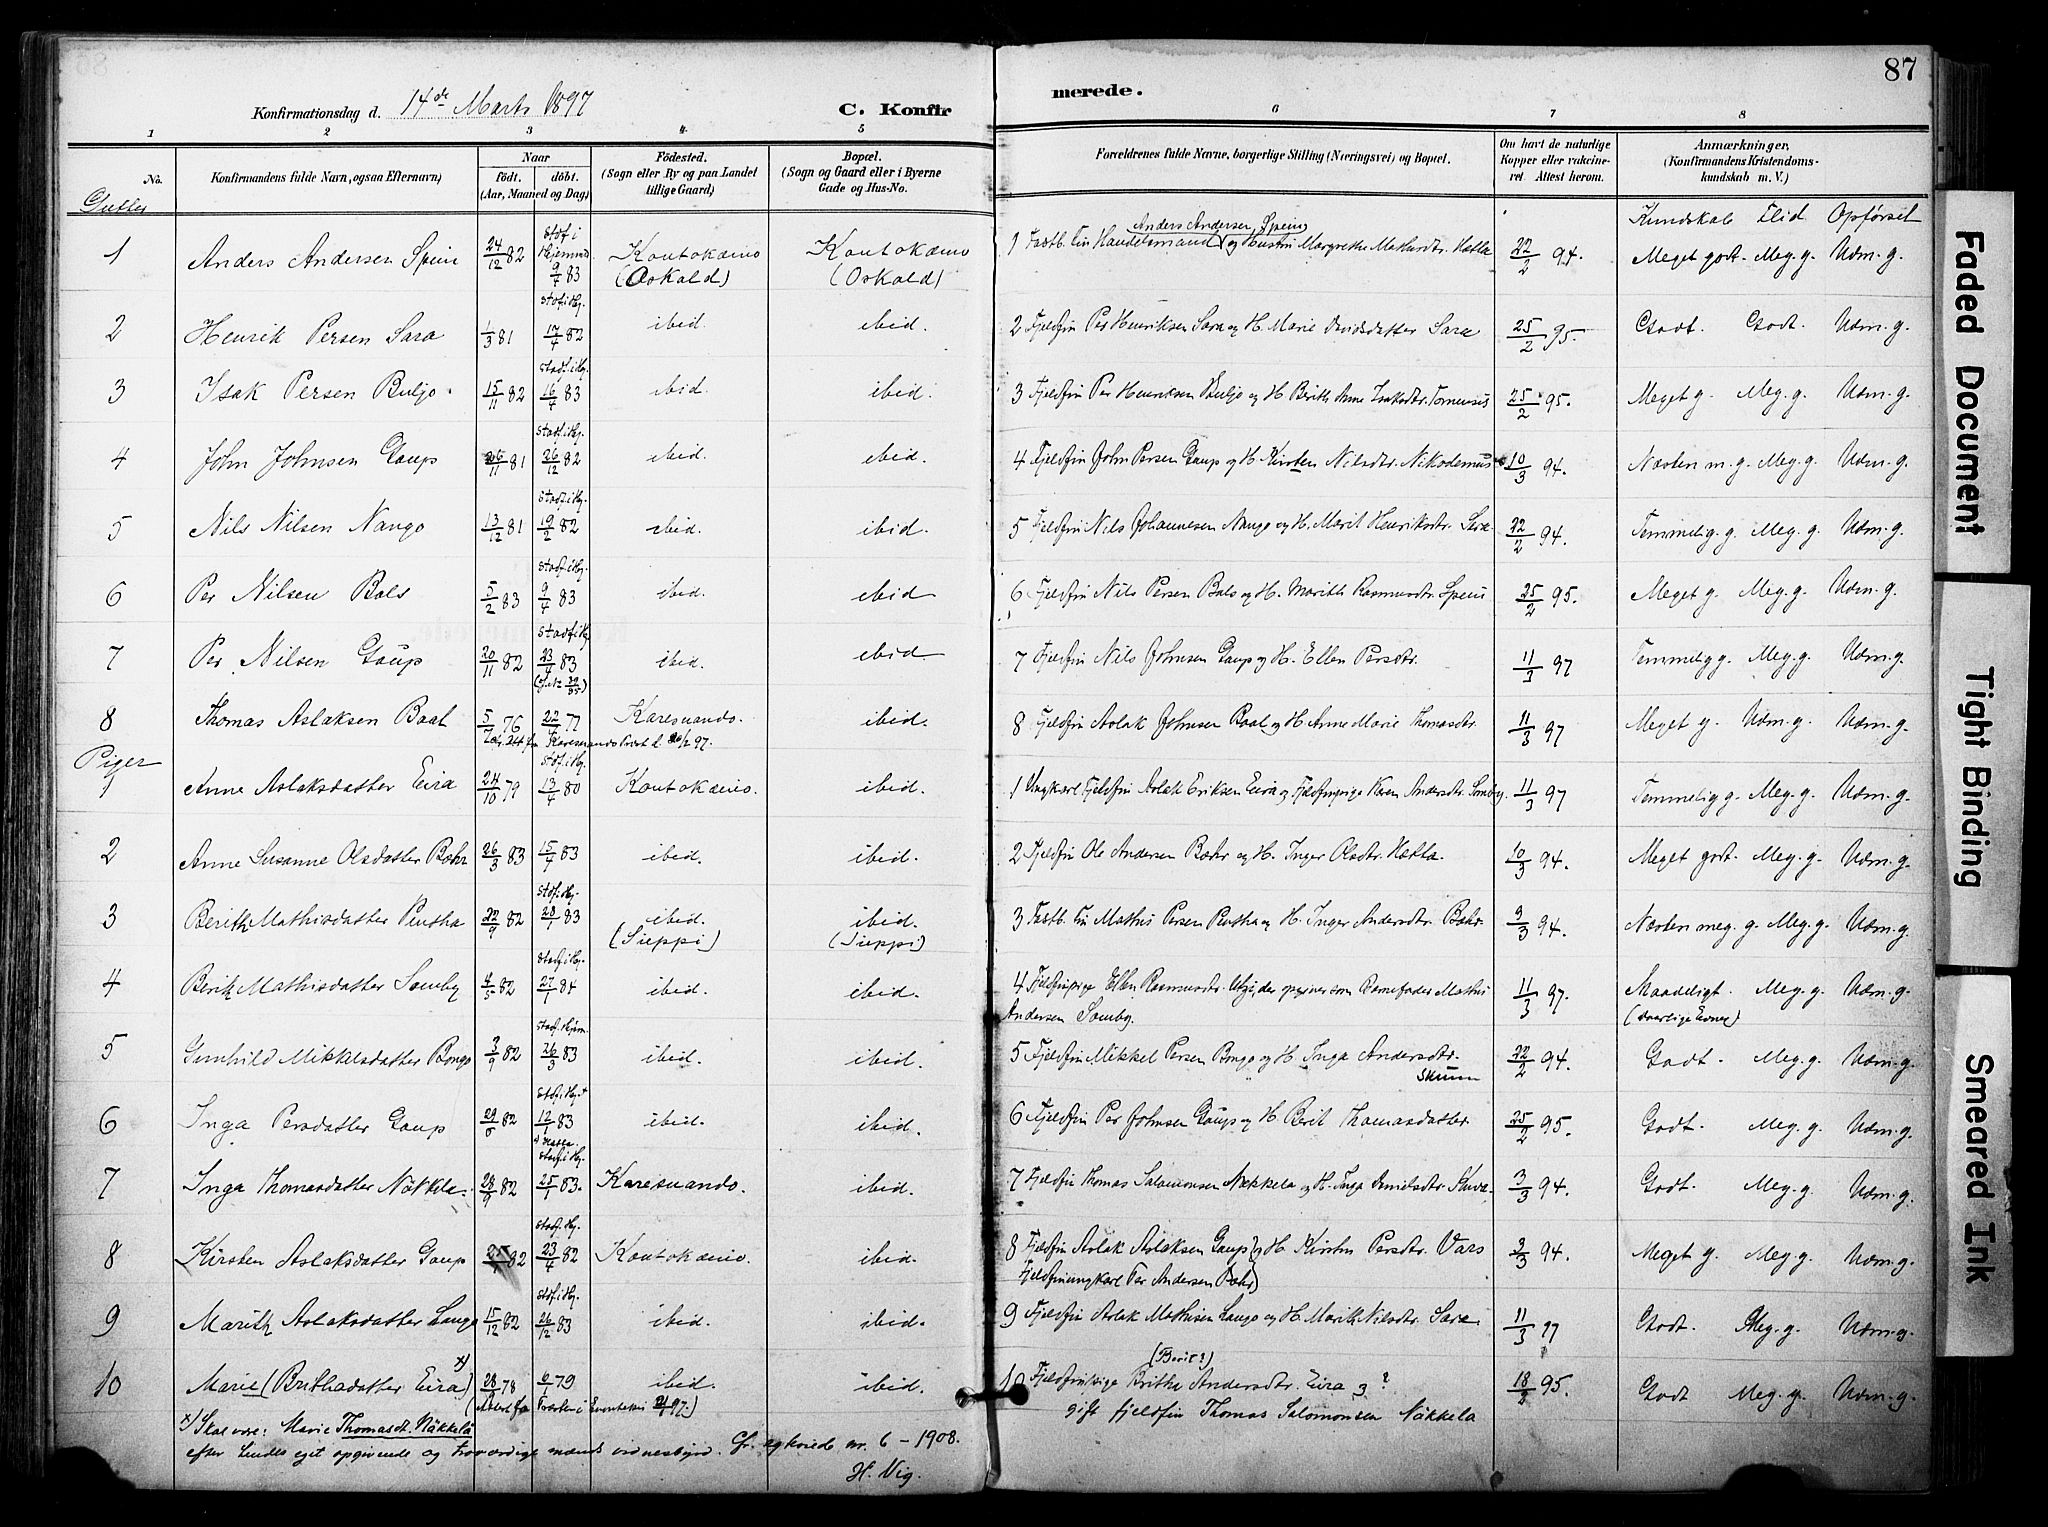 87
Konfirmationsdag d. 14de Marts 1897 C. Konfir
merede.
1 2 3 4 5 6 7 8
No.
Konfirmandens fulde Navn, ogsaa Efternavn)
Naar
födt. döbt.
(Aar, Maaned og Dag)
Födested.
(Sogn eller By og paa Landet tillige Gaard)
Bopæl.
(Sogn og Gaard eller i Byerne Gade og Hus-No.
Forældrenes fulde Navne, borgerlige Stilling (Næringsvei) og Bopæl.
Om havt de naturlige Kopper eller vakcineret. Attest herom.
Anmærkninger,
(Konfirmandens Kristendomskundskab m. V.)
Gutter
Kundskab Flid Opførsel
1 Anders Andersen Spein 24/12 82 stadf. i Hjemmed. 9/4 83 Koutokæino (Oskald) Koutokæino (Oskald) 1 Fastb. Fin Handelsmand Anders Andersen Spein og Hustru Margrethe Mathisdtr. Hætta 22/2 94. Meget godt. Meg. g. Udm. g.
2 Henrik Persen Sara 1/3 81 stadf. i Hj. 17/4 82 ibid. ibid. 2 Fjeldfin Per Henriksen Sara og H. Marie Davidsdatter Sara 25/2 95. Godt. Godt. Udm. g.
3 Isak Persen Buljo 15/11 82 stadf. i Hj. 16/4 83 ibid. ibid. 3 Fjeldfin Per Henriksen Buljo og H. Berith Anne Isaksdtr. Tornensis 25/2 95. Meget g. Meg. g. Udm. g.
4 John Johnsen Gaup 26/11 81 stadf. i Hj. 26/12 82 ibid. ibid. 4 Fjeldfin John Persen Gaup og H. Kirsten Nilsdtr. Nikodemus 10/3 94. Næsten m. g. Meg. g. Udm. g.
5 Nils Nilsen Nango 13/12 81 stadf. i Hj. 19/2 82 ibid. ibid. 5 Fjeldfin Nils Johannesen Nango og H. Marit Henriksdtr. Sara 22/2 94. Temmelig g. Meg. g. Udm. g.
6 Per Nilsen Bals 5/2 83 stadf. i Hj. 9/4 83 ibid. ibid 6 Fjeldfin Nils Persen Bals og H. Marith Rasmusdtr. Spein 25/2 95. Meget g. Meg. g. Udm. g.
7 Per Nilsen Gaup 20/11 82 stadf i Hj 23/4 83 ibid. ibid. 7 Fjeldfin Nils Johnsen Gaup og H. Ellen Persdtr. 11/3 97 Temmelig g. Meg. g. Udm. g.
8 Thomas Aslaksen Baal 5/5 76 22/7 77 Karesuando. ibid. 8 Fjeldfin Aslak Johnsen Baal og H. Anne Marie Thomasdtr. 11/3 97 Meget g. Udm. g. Udm. g.
Piger
1 Anne Aslaksdatter Eira 24/10 79 stadf. i Hj. 13/4 80 Koutokæino. ibid. 1 Ungkarl Fjeldfin Aslak Eriksen Eira og Fjeldfinpige Karen Andersdtr. Somby. 11/3 97 Temmelig g. Meg. g. Udm. g.
2 Anne Susanne Olsdatter Bæhr 26/3 83 15/4 83 ibid. ibid. 2 Fjeldfin Ole Andersen Bæhr og H. Inger Olsdtr. Hætta. 10/3 94. Meget godt. Meg. g. Udm. g.
3 Berith Mathisdatter Pentha 22/9 82 stadf. i Hj. 28/1 83 ibid. (Sieppi) ibid. (Sieppi) 3 Fastb. Fin Mathis Persen Pentha og H. Inger Andersdtr. Bæhr. 9/3 94. Næsten meg. g. Meg. g. Udm. g.
4 Berith Mathisdatter Somby 4/5 82 stadf. i Hj. 27/1 84 ibid. ibid. 4 Fjeldfinpige Ellen Rasmusdtr. Utsi, der opgiver som Barnefader Mathis Andersen Somby. 11/3 97. Maadeligt. (daarlige Evner) Meg. g. Udm. g.
5 Gunhild Mikkelsdatter Bongo 3/9 82 stadf. Hjem. 26/3 83 ibid. ibid. 5 Fjeldfin Mikkel Persen Bongo og H. Inga Andersdtr. Skum 22/2 94. Godt. Meg. g. Udm. g.
6 Inga Persdatter Gaup 29/6 82 stadf. i Hj. 12/1 83 ibid. ibid. 6 Fjeldfin Per Johnsen Gaup og H. Berit Thomasdatter. 25/2 95. Godt. Meg. g. Udm. g.
7 Inga Thomasdatter Näkkela 28/9 82 stadf. i Hj. 25/1 83. Karesuando. ibid. 7 Fjeldfin Thomas Salomonsen Nækkela og H. Inga 3/3 94. Godt. Meg. g. Udm. g.
8 Kirsten Aslaksdatter Gaup 82 stadf. Hj. 23/4 82 Koutokæino. ibid. 8 Fjeldfin Aslak Aslaksen Gaup og H. Kirsten Persdtr. Vars 3/3 94. Meget g. Meg. g. Udm. g.
Fjeldfinungkarl Per Andersen Bæhr)
9 Marith Aslaksdatter Lango 15/12 82 stadf. i Hj. 26/12 83 ibid. ibid. 9 Fjeldfin Aslak Mathisen Lango og H. Marith Nilsdtr. Sara 11/3 97 Godt. Meg. g. Udm. g.
10 Marie (Brithadatter Eira) x) 28/1 78 6/1 79 ibid. ibid. 10 Fjeldfinpige Britha (Berit?) Andersdtr. Eira ? 18/2 95. Godt Meg. g. Udm. g.
gift fjeldfin Thomas Salomonsen Näkkela
x) Skal være: Marie Thomasdt. Näkkelä
efter hendes eget opgivende og troværdige mænds vidnesbyrd. Cfr. egteviede nr. 6 - 1908.
H. Vig.
Faded Document
Tight Binding
Smeared Ink